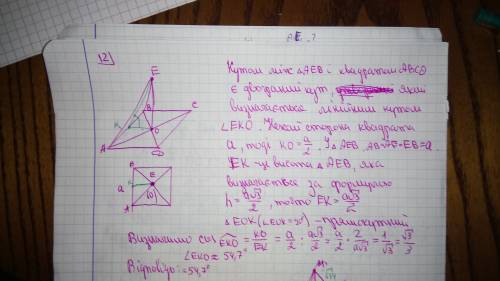 AE - ?
12)
Кутом між △AEB і квадратом ABCD
є двогранний кут, який
визначається лінійним кутом
∠EKO. Нехай сторона квадрата
a, тоді KO = a/2. У △AEB, AB=AE=EB=a.
EK - це висота △AEB, яка
визначається за формулою
h = a√3/2, тобто EK = a√3/2
△EOK (∠EOK = 90°) - прямокутний
Визначимо cos EKO = KO/EK = a/2 : a√3/2 = a/2 · 2/a√3 = 1/√3 = √3/3
∠EKO ≈ 54,7°
Відповідь: ≈ 54,7°
E
B
C
K
O
A
D
B
E
a
O
A
M